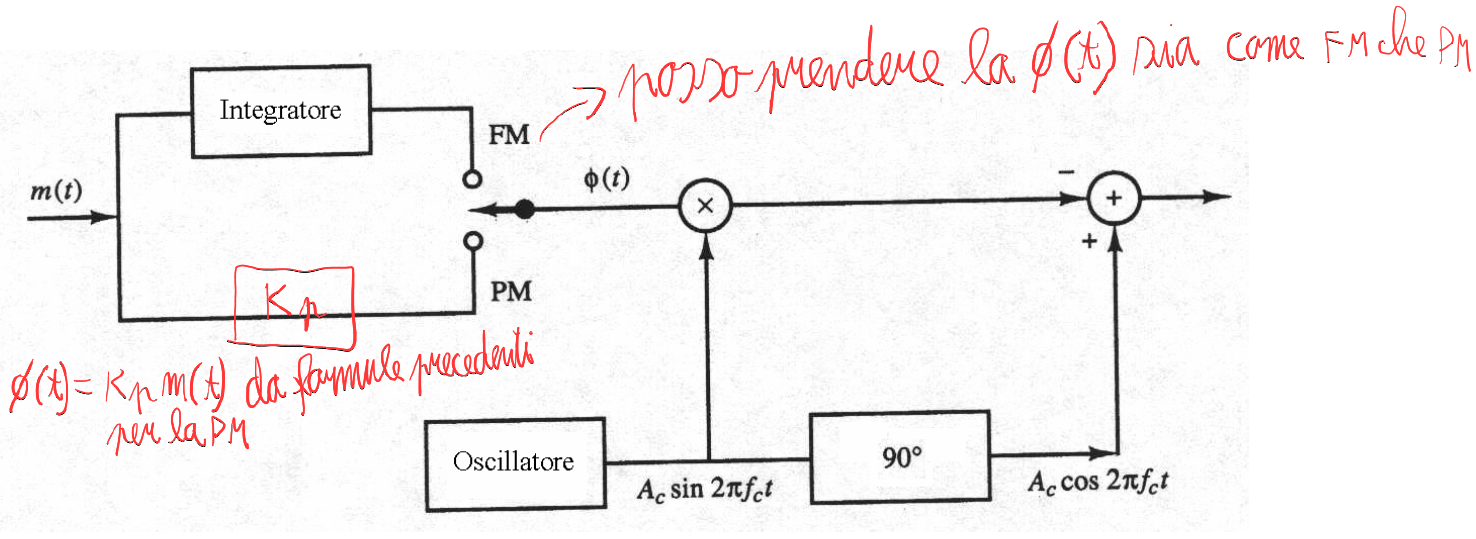 posso prendere la ϕ(t) sia come FM che PM
Integratore
FM
m(t)
ϕ(t)
×
−
+
+
Kp
PM
ϕ(t) = Kp m(t) da formule precedenti
per la PM
Oscillatore
90°
A_c sin 2πf_ct
A_c cos 2πf_ct